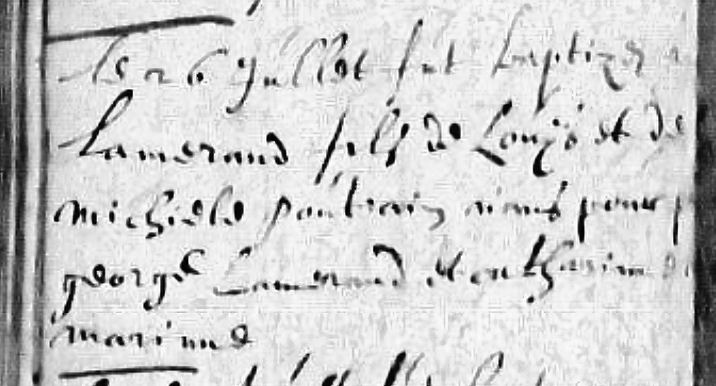 le 26 Jullet fut baptizé
Lamerand filz de Louys et de
michiele poutrain aiant pour p
george Lamerand et catharine de
marie